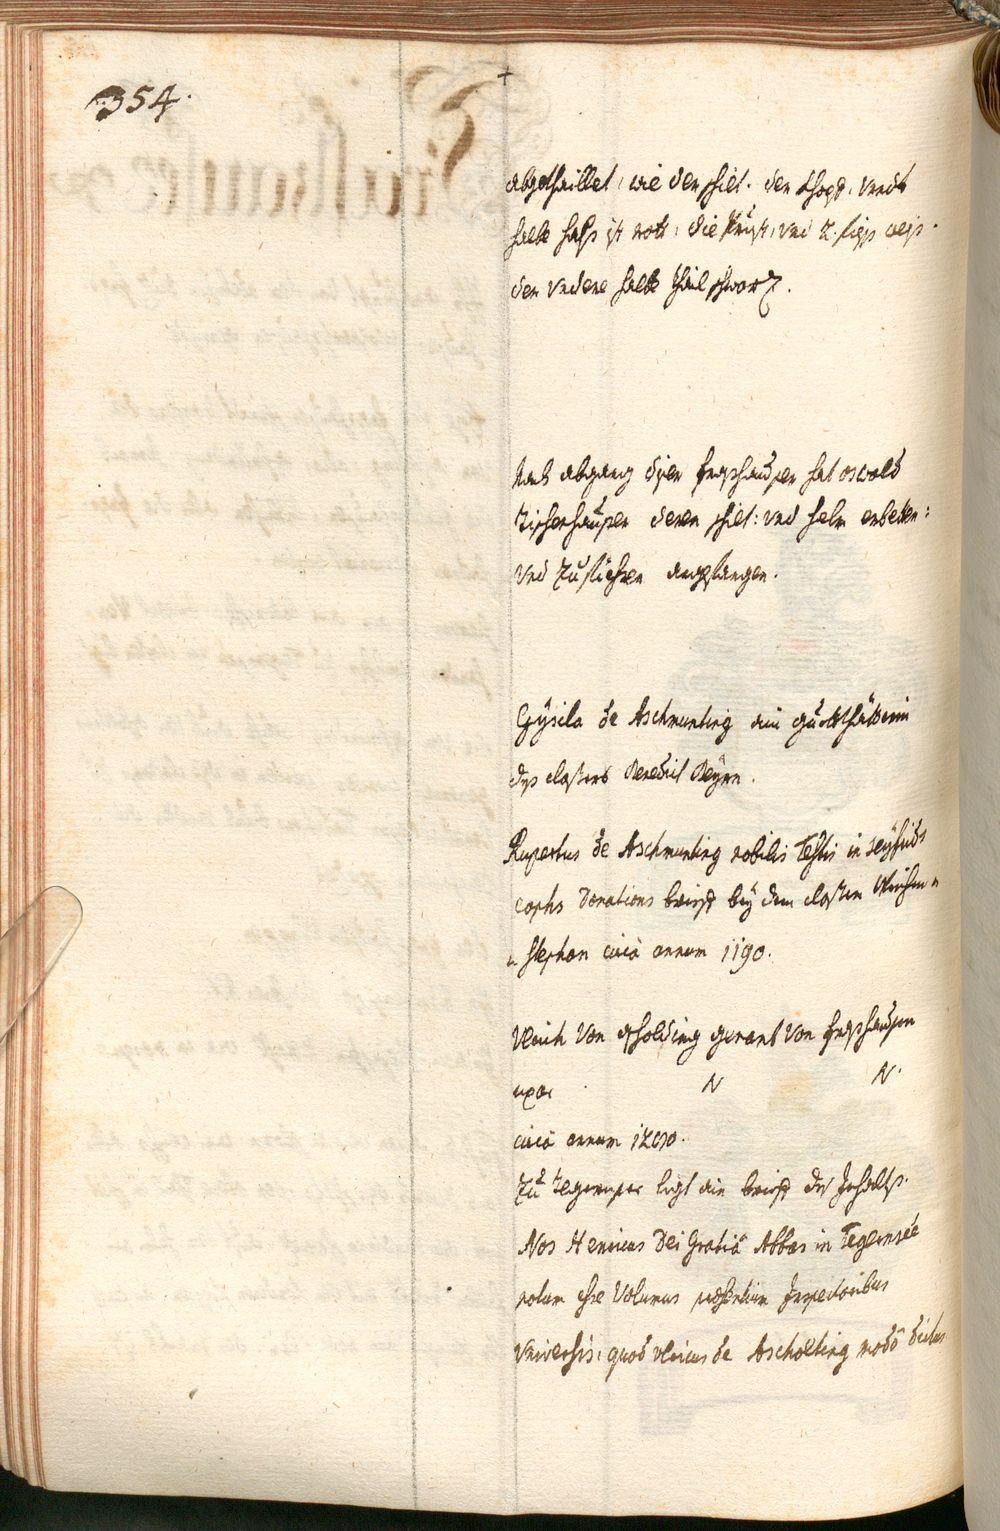 354.
abgethaillet, wie der schilt. der khopf, vnndt
halbe halß ist rott, die Prust, vnd 2. fieß weiß.
der vndere halbe thail schwarz.
Nach abgang diser haußen hat oswald
Zischenhauser deren schilt: vnd helm erbetten:
vnd zufiehren angefangen.
Gÿsila de Aschmunting ain guetthätterin
deß closters Benedict Beÿrn.
Rupertus de Aschmunting nobilis Testis in Seÿfrids
Donations brieff beÿ dem closter Weichen
Stephan circà annum 1190.
Vlrich von Ascholding genant von
uxor N N.
circà annum 1290.
Zu Tegernsee ligt ain brieff des Inhalts.
Nos Henricus Dei Gratiâ Abbas in Tegernsee
notum esse Volumus præsentium Inspectoribus
Vniversis, quod vlricus de Ascholting modò dictus